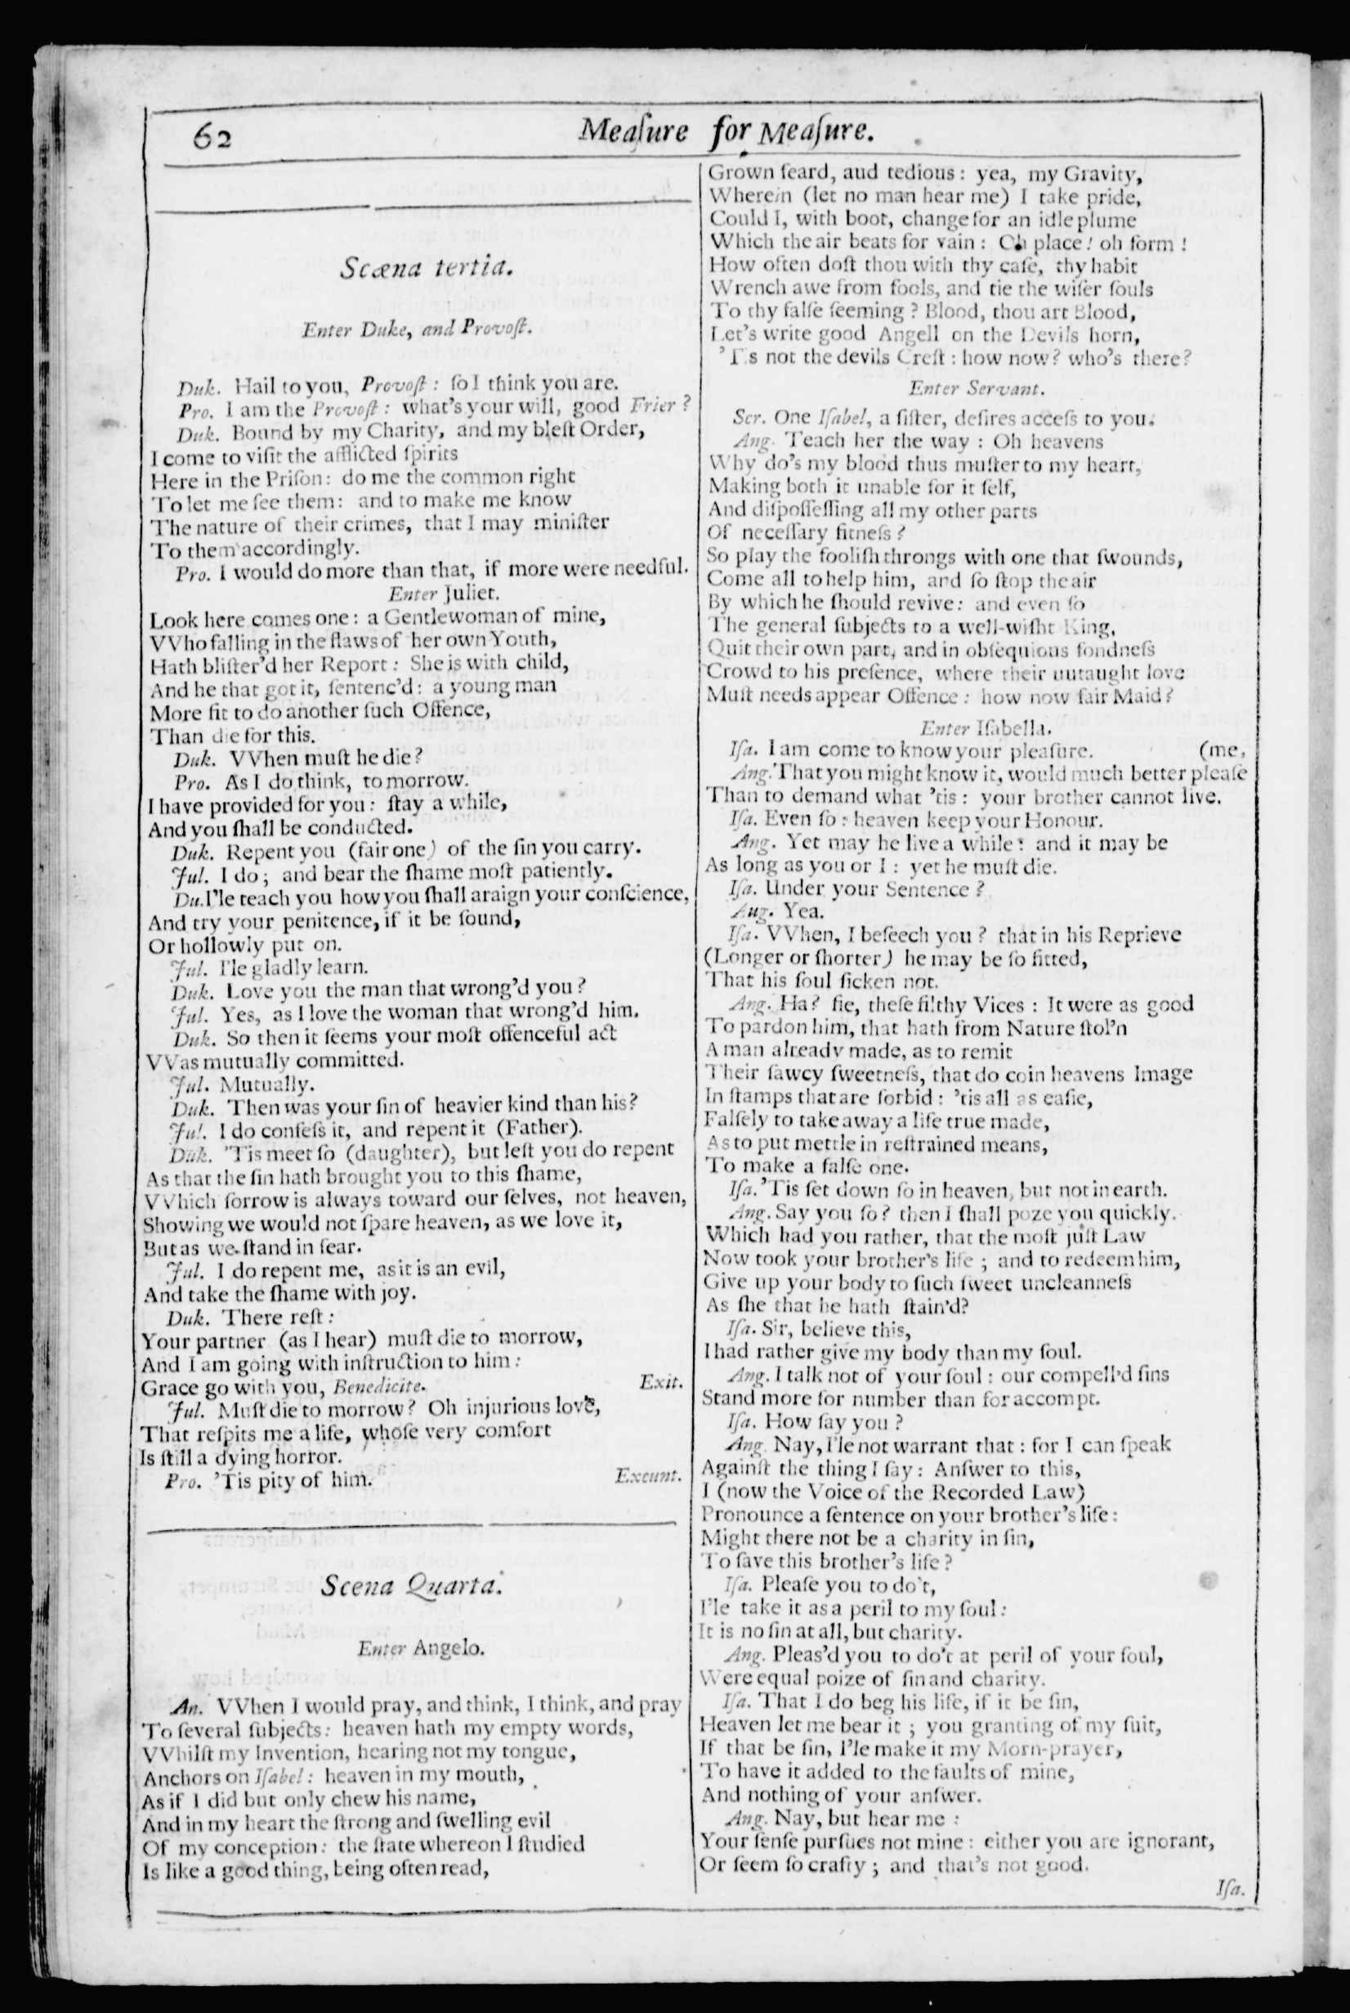 62
Meaſure for Meaſure.
Scæna tertia.
Enter Duke, and Provoſt.
Duk. Hail to you, Provoſt: ſo I think you are.
Pro. I am the Provoſt: what's your will, good Frier?
Duk. Bound by my Charity, and my bleſt Order,
I come to viſit the afflicted ſpirits
Here in the Priſon: do me the common right
To let me ſee them: and to make me know
The nature of their crimes, that I may miniſter
To them accordingly.
Pro. I would do more than that, if more were needful.
Enter Juliet.
Look here comes one: a Gentlewoman of mine,
VVho falling in the flaws of her own Youth,
Hath bliſter'd her Report: She is with child,
And he that got it, ſentenc'd: a young man
More fit to do another ſuch Offence,
Than die for this.
Duk. VVhen muſt he die?
Pro. As I do think, to morrow.
I have provided for you: ſtay a while,
And you ſhall be conducted.
Duk. Repent you (fair one) of the ſin you carry.
Jul. I do; and bear the ſhame moſt patiently.
Du. I'le teach you how you ſhall araign your conſcience,
And try your penitence, if it be ſound,
Or hollowly put on.
Jul. I'le gladly learn.
Duk. Love you the man that wrong'd you?
Jul. Yes, as I love the woman that wrong'd him.
Duk. So then it ſeems your moſt offenceful act
VVas mutually committed.
Jul. Mutually.
Duk. Then was your ſin of heavier kind than his?
Jul. I do confeſs it, and repent it (Father).
Duk. 'Tis meet ſo (daughter), but leſt you do repent
As that the ſin hath brought you to this ſhame,
VVhich ſorrow is always toward our ſelves, not heaven,
Showing we would not ſpare heaven, as we love it,
But as we ſtand in fear.
Jul. I do repent me, as it is an evil,
And take the ſhame with joy.
Duk. There reſt:
Your partner (as I hear) muſt die to morrow,
And I am going with inſtruction to him:
Grace go with you, Benedicite. Exit.
Jul. Muſt die to morrow? Oh injurious love,
That reſpits me a life, whoſe very comfort
Is ſtill a dying horror.
Pro. 'Tis pity of him. Exeunt.
Scena Quarta.
Enter Angelo.
An. VVhen I would pray, and think, I think, and pray
To ſeveral ſubjects: heaven hath my empty words,
VVhilſt my Invention, hearing not my tongue,
Anchors on Iſabel: heaven in my mouth,
As if I did but only chew his name,
And in my heart the ſtrong and ſwelling evil
Of my conception: the ſtate whereon I ſtudied
Is like a good thing, being often read,
Grown ſeard, aud tedious: yea, my Gravity,
Wherein (let no man hear me) I take pride,
Could I, with boot, change for an idle plume
Which the air beats for vain: Oh place! oh form!
How often doſt thou with thy caſe, thy habit
Wrench awe from fools, and tie the wiſer ſouls
To thy falſe ſeeming? Blood, thou art Blood,
Let's write good Angell on the Devils horn,
'Tis not the devils Creſt: how now? who's there?
Enter Servant.
Ser. One Iſabel, a ſiſter, deſires acceſs to you.
Ang. Teach her the way: Oh heavens
Why do's my blood thus muſter to my heart,
Making both it unable for it ſelf,
And diſpoſſeſſing all my other parts
Of neceſſary fitneſs?
So play the fooliſh throngs with one that ſwounds,
Come all to help him, and ſo ſtop the air
By which he ſhould revive: and even ſo
The general ſubjects to a well-wiſht King,
Quit their own part, and in obſequious fondneſs
Crowd to his preſence, where their untaught love
Muſt needs appear Offence: how now fair Maid?
Enter Iſabella.
Iſa. I am come to know your pleaſure. (me,
Ang. That you might know it, would much better pleaſe
Than to demand what 'tis: your brother cannot live.
Iſa. Even ſo: heaven keep your Honour.
Ang. Yet may he live a while: and it may be
As long as you or I: yet he muſt die.
Iſa. Under your Sentence?
Aug. Yea.
Iſa. VVhen, I beſeech you? that in his Reprieve
(Longer or ſhorter) he may be ſo fitted,
That his ſoul ſicken not.
Ang. Ha? fie, theſe filthy Vices: It were as good
To pardon him, that hath from Nature ſtol'n
A man already made, as to remit
Their ſawcy ſweetneſs, that do coin heavens Image
In ſtamps that are forbid: 'tis all as eaſie,
Falſely to take away a life true made,
As to put mettle in reſtrained means,
To make a falſe one.
Iſa. 'Tis ſet down ſo in heaven, but not in earth.
Ang. Say you ſo? then I ſhall poze you quickly.
Which had you rather, that the moſt juſt Law
Now took your brother's life; and to redeem him,
Give up your body to ſuch ſweet uncleanneſs
As ſhe that he hath ſtain'd?
Iſa. Sir, believe this,
I had rather give my body than my ſoul.
Ang. I talk not of your ſoul: our compell'd ſins
Stand more for number than for accompt.
Iſa. How ſay you?
Ang. Nay, I'le not warrant that: for I can ſpeak
Againſt the thing I ſay: Anſwer to this,
I (now the Voice of the Recorded Law)
Pronounce a ſentence on your brother's life:
Might there not be a charity in ſin,
To ſave this brother's life?
Iſa. Pleaſe you to do't,
I'le take it as a peril to my ſoul:
It is no ſin at all, but charity.
Ang. Pleas'd you to do't at peril of your ſoul,
Were equal poize of ſin and charity.
Iſa. That I do beg his life, if it be ſin,
Heaven let me bear it; you granting of my ſuit,
If that be ſin, I'le make it my Morn-prayer,
To have it added to the faults of mine,
And nothing of your anſwer.
Ang. Nay, but hear me:
Your ſenſe purſues not mine: either you are ignorant,
Or ſeem ſo crafty; and that's not good.
Iſa.